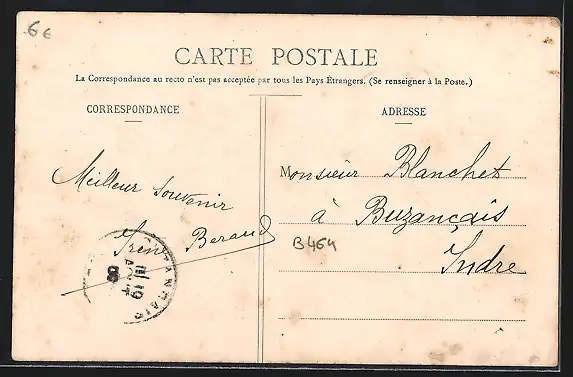 6€
CARTE POSTALE
La Correspondance au recto n'est pas acceptée par tous les Pays Étrangers. (Se renseigner à la Poste.)
CORRESPONDANCE
ADRESSE
Meilleur souvenir
Irène Beraud
Monsieur Blanchet
à Buzançais
Indre
B464